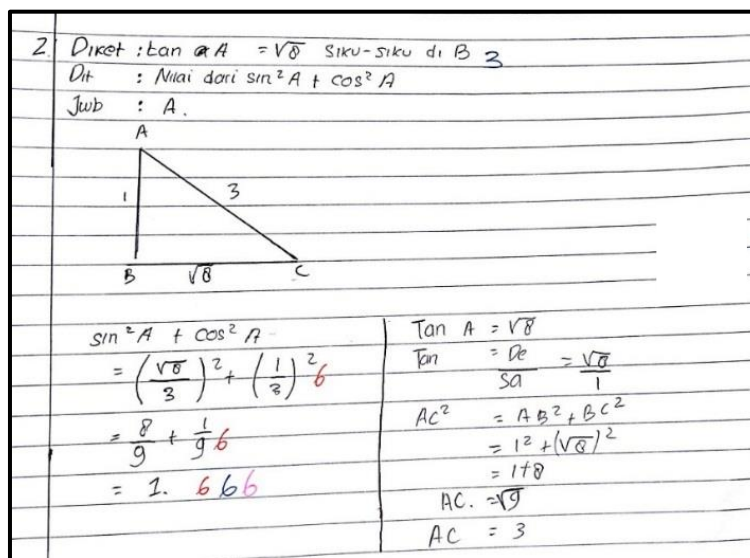 2. Diket : tan A = √8 siku-siku di B 3
Dit : Nilai dari sin² A + cos² A
Jwb : A.
A
1
3
B
√8
C
sin² A + cos² A
= (√8/3)² + (1/3)² 6
= 8/9 + 1/9 6
= 1. 6 6 6
Tan A = √8
Tan = De/Sa = √8/1
AC² = AB² + BC²
= 1² + (√8)²
= 1+8
AC. = √9
AC = 3